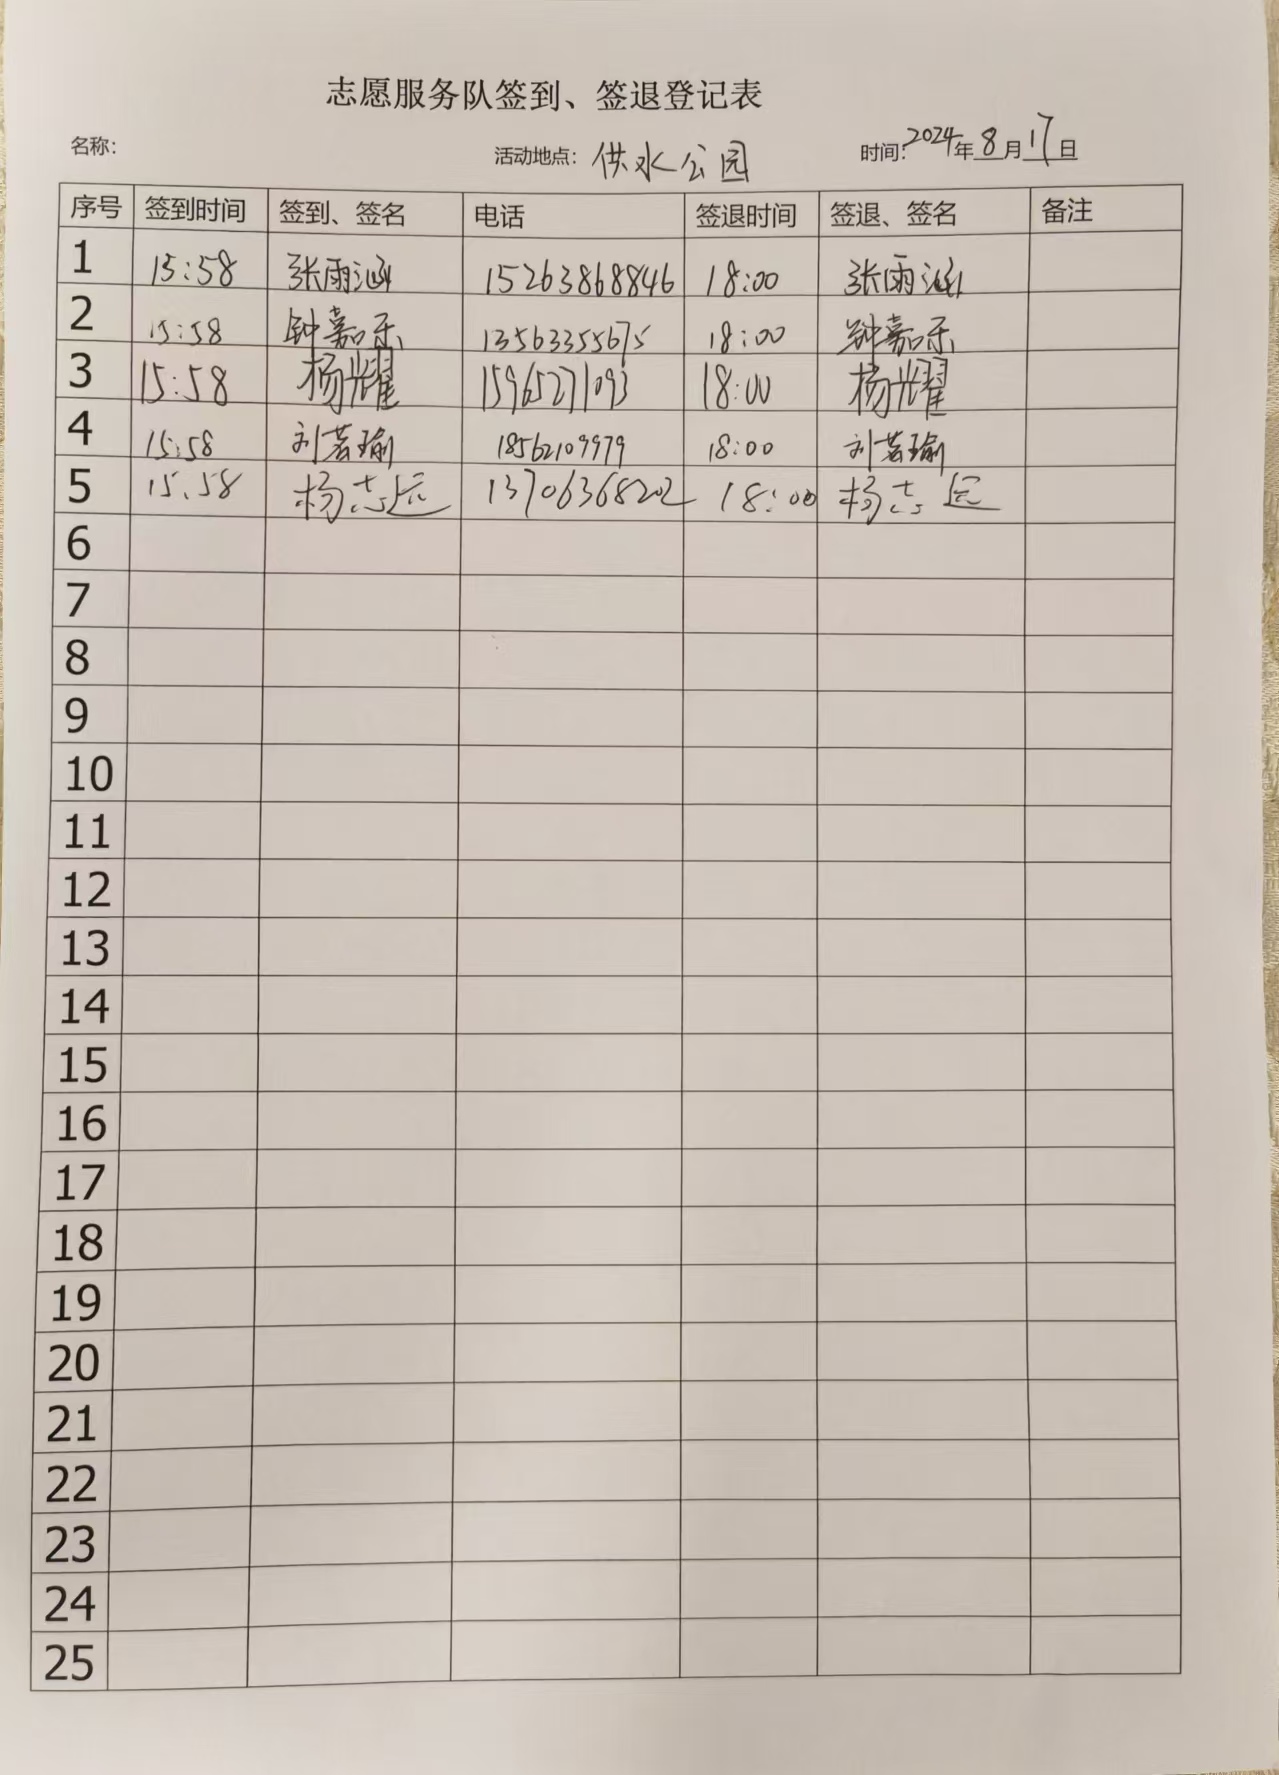 志愿服务队签到、签退登记表
名称: 活动地点: 供水公园 时间:2024年8月17日
序号 签到时间 签到、签名 电话 签退时间 签退、签名 备注
1 15:58 张雨涵 15263868846 18:00 张雨涵
2 15:58 钟嘉乐 13563355675 18:00 钟嘉乐
3 15:58 杨耀 15965271093 18:00 杨耀
4 15:58 刘若瑜 18562109979 18:00 刘若瑜
5 15:58 杨志远 13706368202 18:00 杨志远
6
7
8
9
10
11
12
13
14
15
16
17
18
19
20
21
22
23
24
25